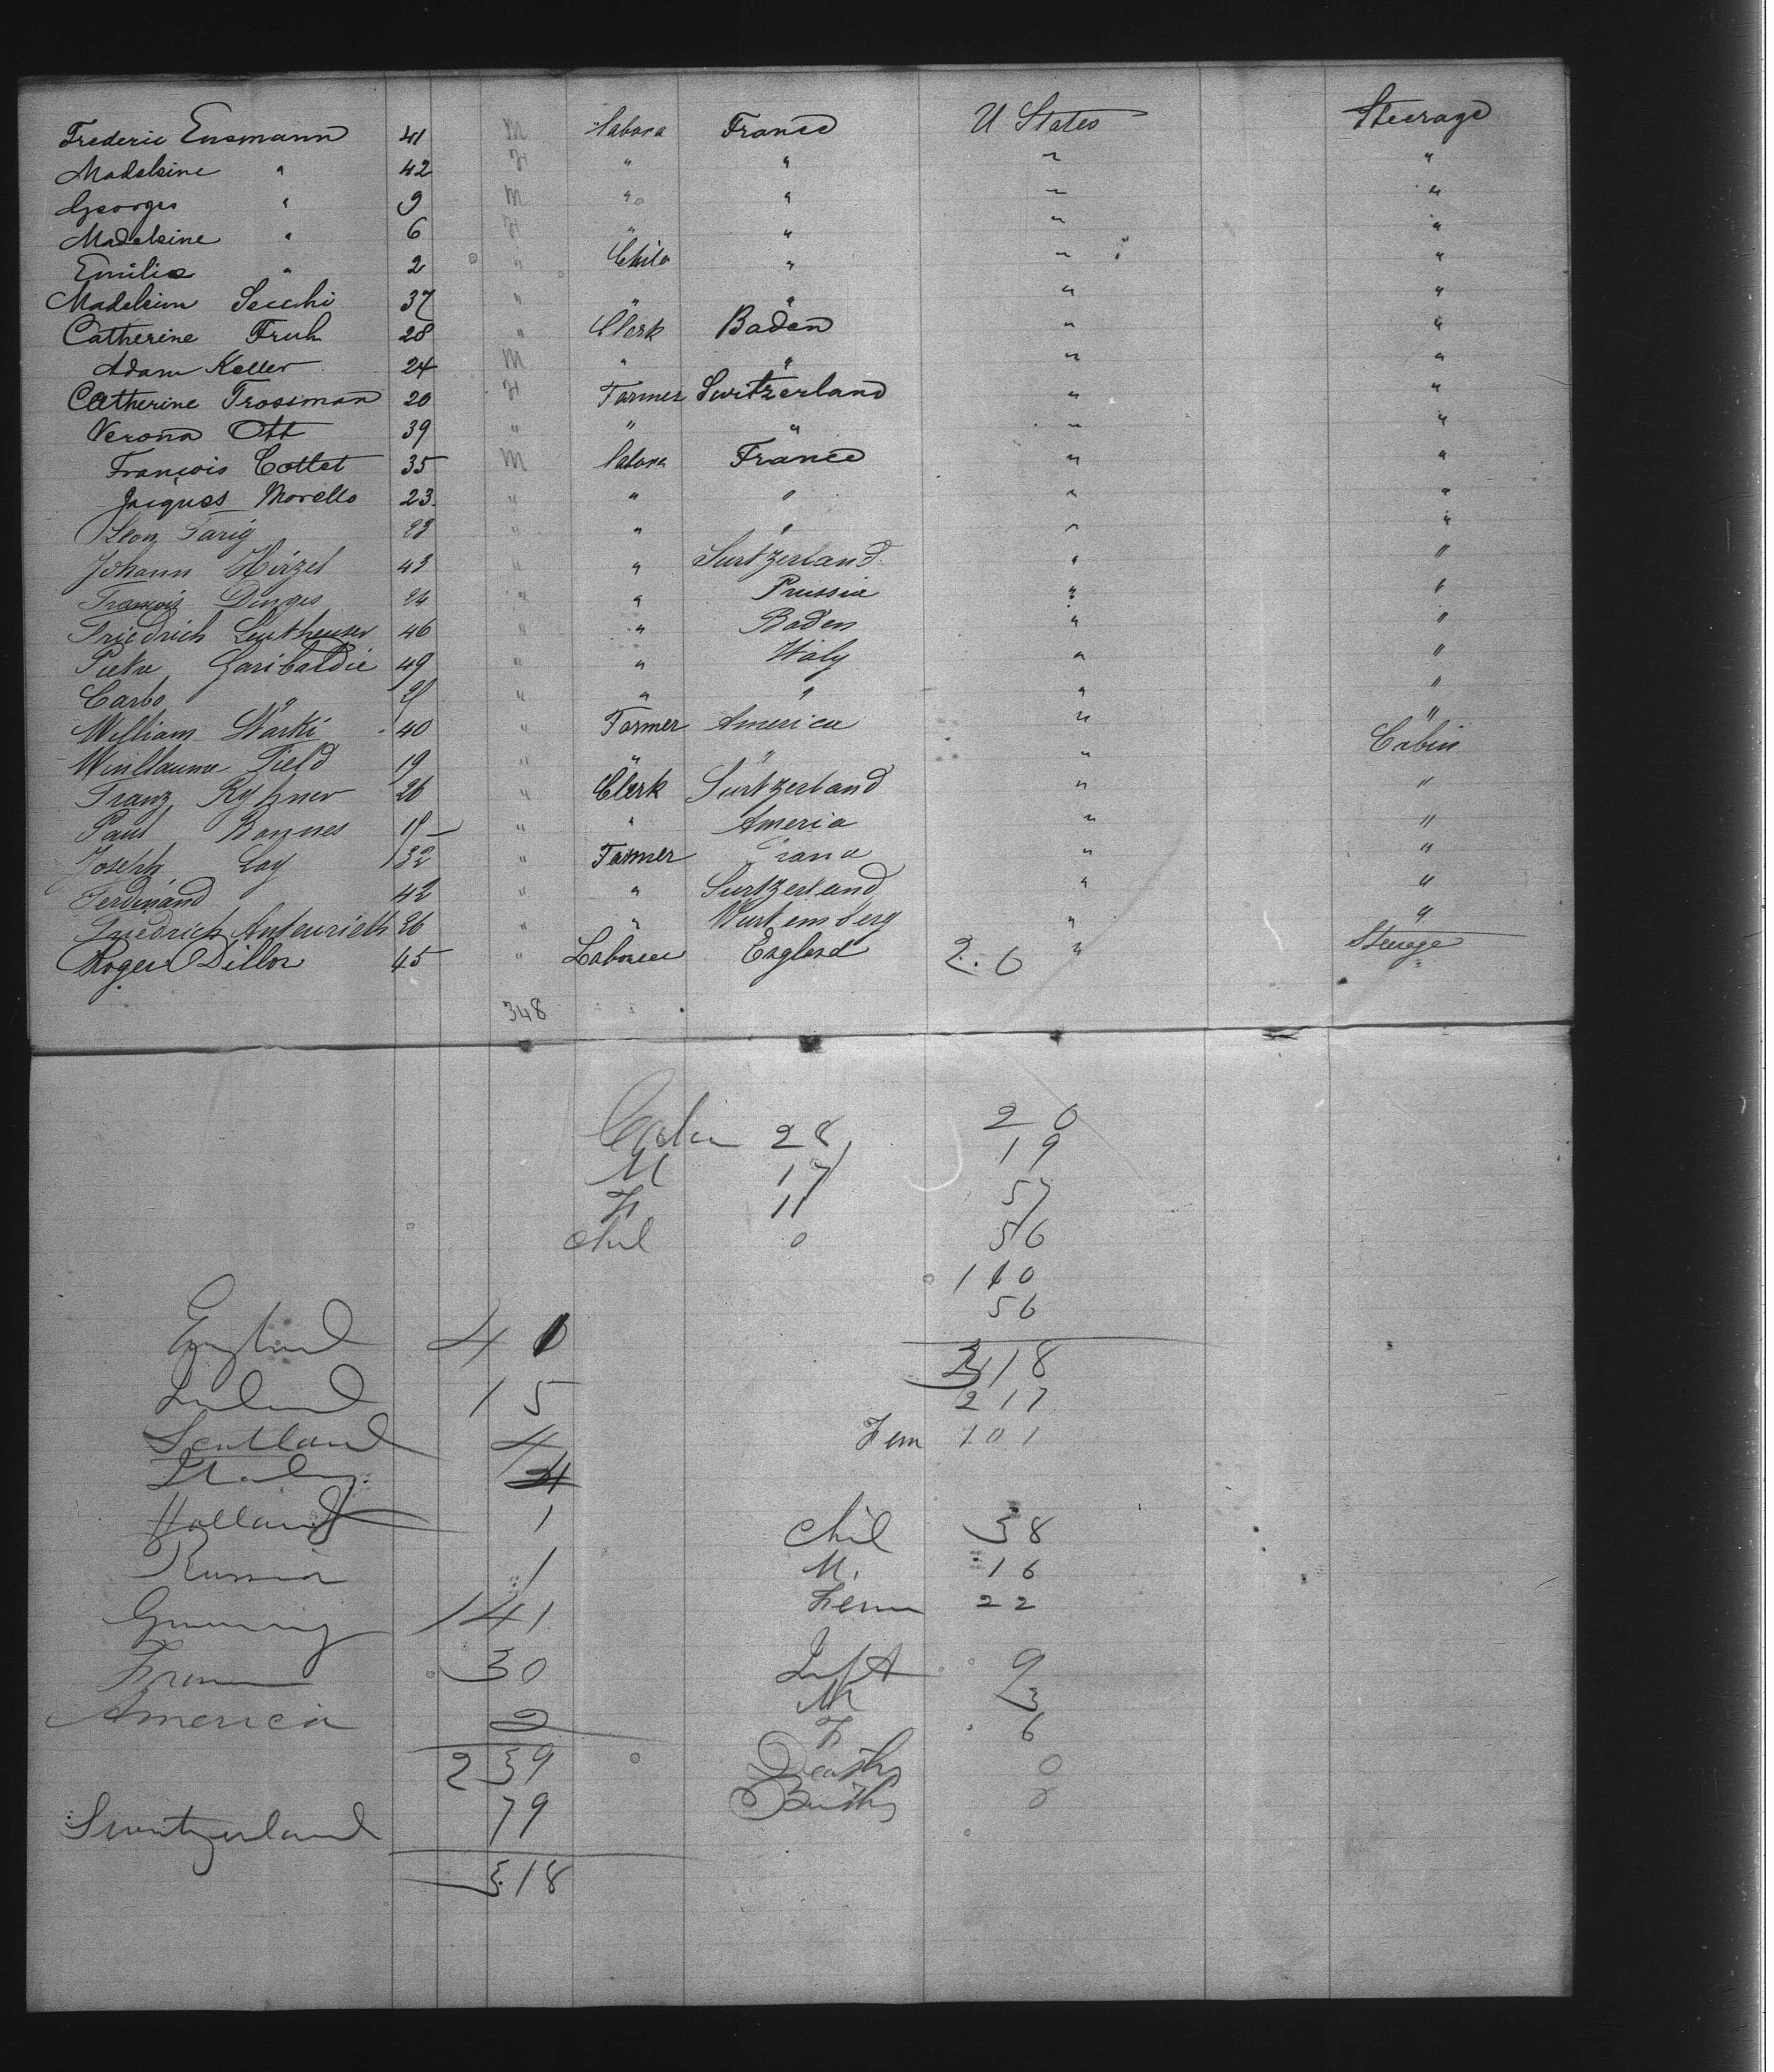 Frederic Ensmann 41 M Labora France U States Steerage
Madeleine " 42 F " " " "
Georges " 9 M " " " "
Madeleine " 6 F " " " "
Emilie " 2 " Child " " "
Madeleine Secchi 37 " " " " "
Catherine Fruh 28 " Clerk Baden " "
Adam Keller 24 M " " " "
Catherine Trossman 20 F Farmer Switzerland " "
Verona Ott 39 " " " " "
François Cottet 35 M Labora France " "
Jacques Morello 23 " " " " "
Leon Tarig 23 " " " " "
Johann Hirzel 43 " " Surtzerland " "
François Dinges 24 " " Prussia " "
Friedrich Leutheuser 46 " " Baden " "
Pietro Garibaldie 49 " " Italy " "
Carbo " " " " " "
William Starki 40 " Farmer America " "
Field 19 " " " " Cabin
Franz Ryhner 26 " Clerk Surtzerland " "
Paul Bonnes " " Ameria " "
Joseph Lay 32 " Farmer " "
Ferdinand 42 " " Surtzerland " "
Friedrich Autenrieth 26 " " Wurtemberg " "
Roger Dillon 45 " Laborer England 26 " Steerage
348
Cabin 28 20
M 17 19
F 11 57
Chil 0 56
110
56
England 40
318
Ireland 15 217
Scotland 4 Fem 101
Italy 4
Holland 1 Chil 38
Russia 1 M. 16
Germany 141 Fem 22
France 30 Inft 9
M 3
America 2 F 6
239 Deaths 0
79 Births 0
Switzerland
318